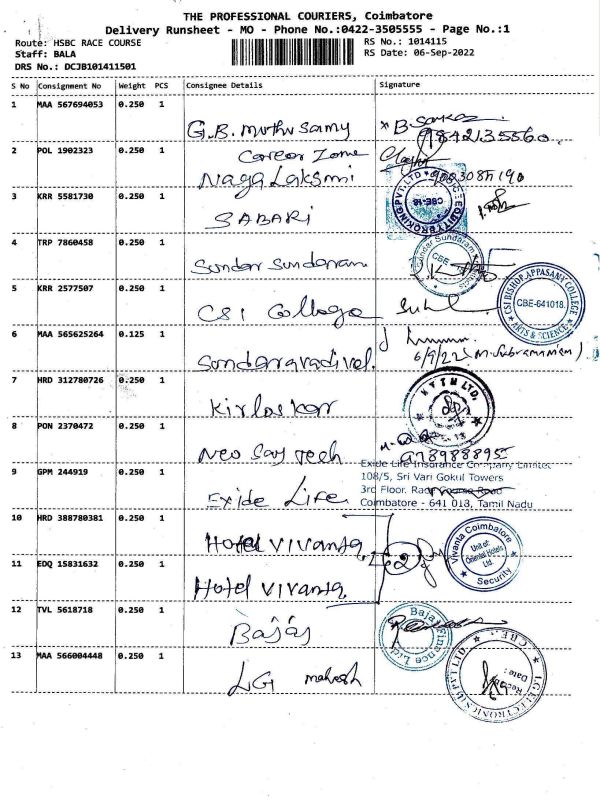 THE PROFESSIONAL COURIERS, Coimbatore
Delivery Runsheet - MO - Phone No.:0422-3505555 - Page No.:1
Route: HSBC RACE COURSE
RS No.: 1014115
Staff: BALA
RS Date: 06-Sep-2022
DRS No.: DCJB101411501
S No Consignment No Weight PCS Consignee Details Signature
1 MAA 567694053 0.250 1
G.B. Muthusamy
9842135560
2 POL 1902323 0.250 1
Career Zone
Naga Laksmi
3 KRR 5581730 0.250 1
SABARI
CBE-18
4 TRP 7860458 0.250 1
Sundar Sundaram
Sundar Sundaram
CBE
5 KRR 2577507 0.250 1
CSI College
CSI BISHOP APPASAMY COLLEGE
CBE-641018.
ARTS & SCIENCE
6 MAA 565625264 0.125 1
Sundaravadivel.
6/9/22 (M.Subramaniam)
7 HRD 312780726 0.250 1
Kirloskar
8 PON 2370472 0.250 1
Neo Say Tech
9 GPM 244919 0.250 1
Exide Life
Exide Life Insurance Company Limited
108/5, Sri Vari Gokul Towers
3rd Floor, Race Course Road
Coimbatore - 641 018, Tamil Nadu
10 HRD 388780381 0.250 1
Hotel VIVANTA
Vivanta Coimbatore
Unit of
Oriental Hotels
Ltd.
Security
11 EDQ 15831632 0.250 1
Hotel VIVANTA
12 TVL 5618718 0.250 1
Bajaj
Bajaj Finance Ltd
13 MAA 566004448 0.250 1
LG mahesh
LG ELECTRONICS (I) PVT LTD.
CBE
Date :